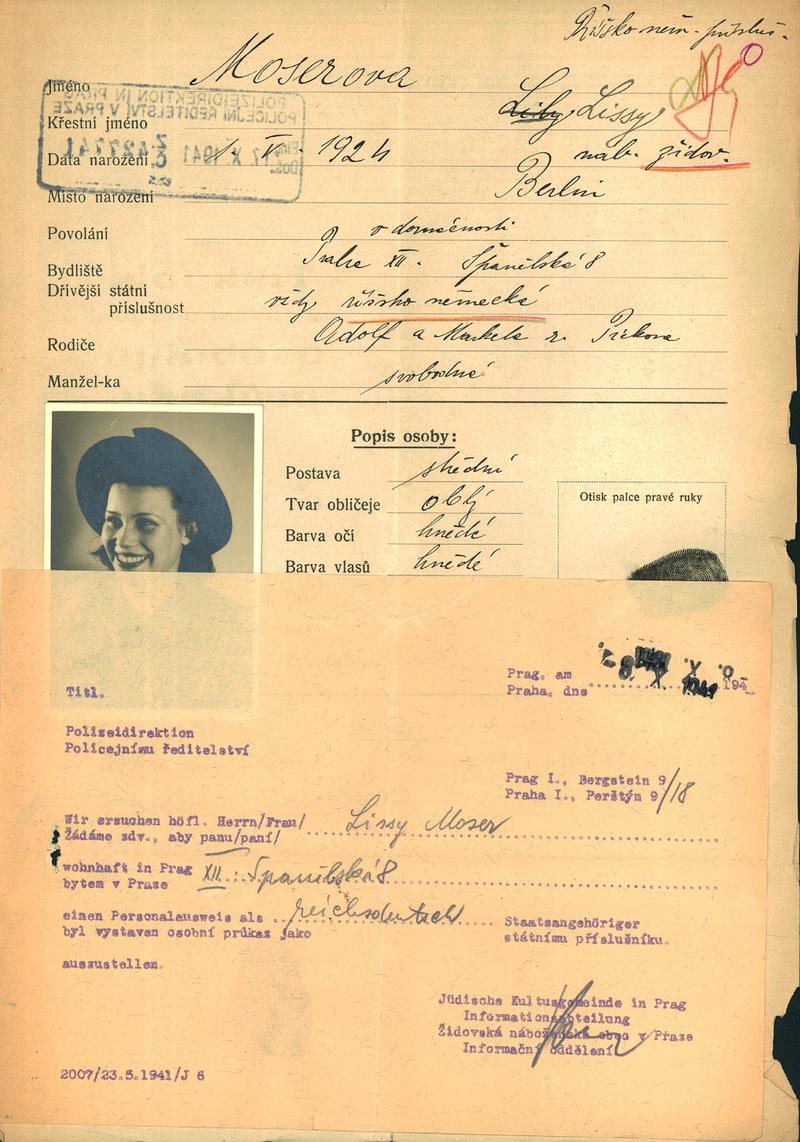 Říšsko něm. přísluš.
Jméno Moserova
Křestní jméno Lily Lissy
Data narození 1. V. 1924 náb. židov.
Místo narození Berlin
Povolání v domácnosti
Bydliště Praha XII. Španělská 8
Dřívější státní
příslušnost vždy říšsko německá
Rodiče Adolf a
Manžel-ka svobodná
POLIZEIDIREKTION IN PRAG
POLICEJNÍ ŘEDITELSTVÍ V PRAZE
7. X. 1941
Popis osoby:
Postava střední
Tvar obličeje oblý
Barva očí hnědé
Barva vlasů hnědé
Otisk palce pravé ruky
Prag, am
Praha, dne 194
Titl.
Polizeidirektion
Policejnímu ředitelství
Prag I., Bergstein 9/18
Praha I., Perštýn 9
Wir ersuchen höfl. Herrn/Frau/ Lissy Moser
Žádáme zdv., aby panu/paní/
wohnhaft in Prag XII. Španělská 8
bytem v Praze
einen Personalausweis als reichsdeutsch Staatsangehöriger
byl vystaven osobní průkaz jako státnímu příslušníku.
auszustellen.
Jüdische Kultusgemeinde in Prag
Informationsabteilung
Židovská náboženská obec v Praze
Informační oddělení
2007/23.5.1941/J 6